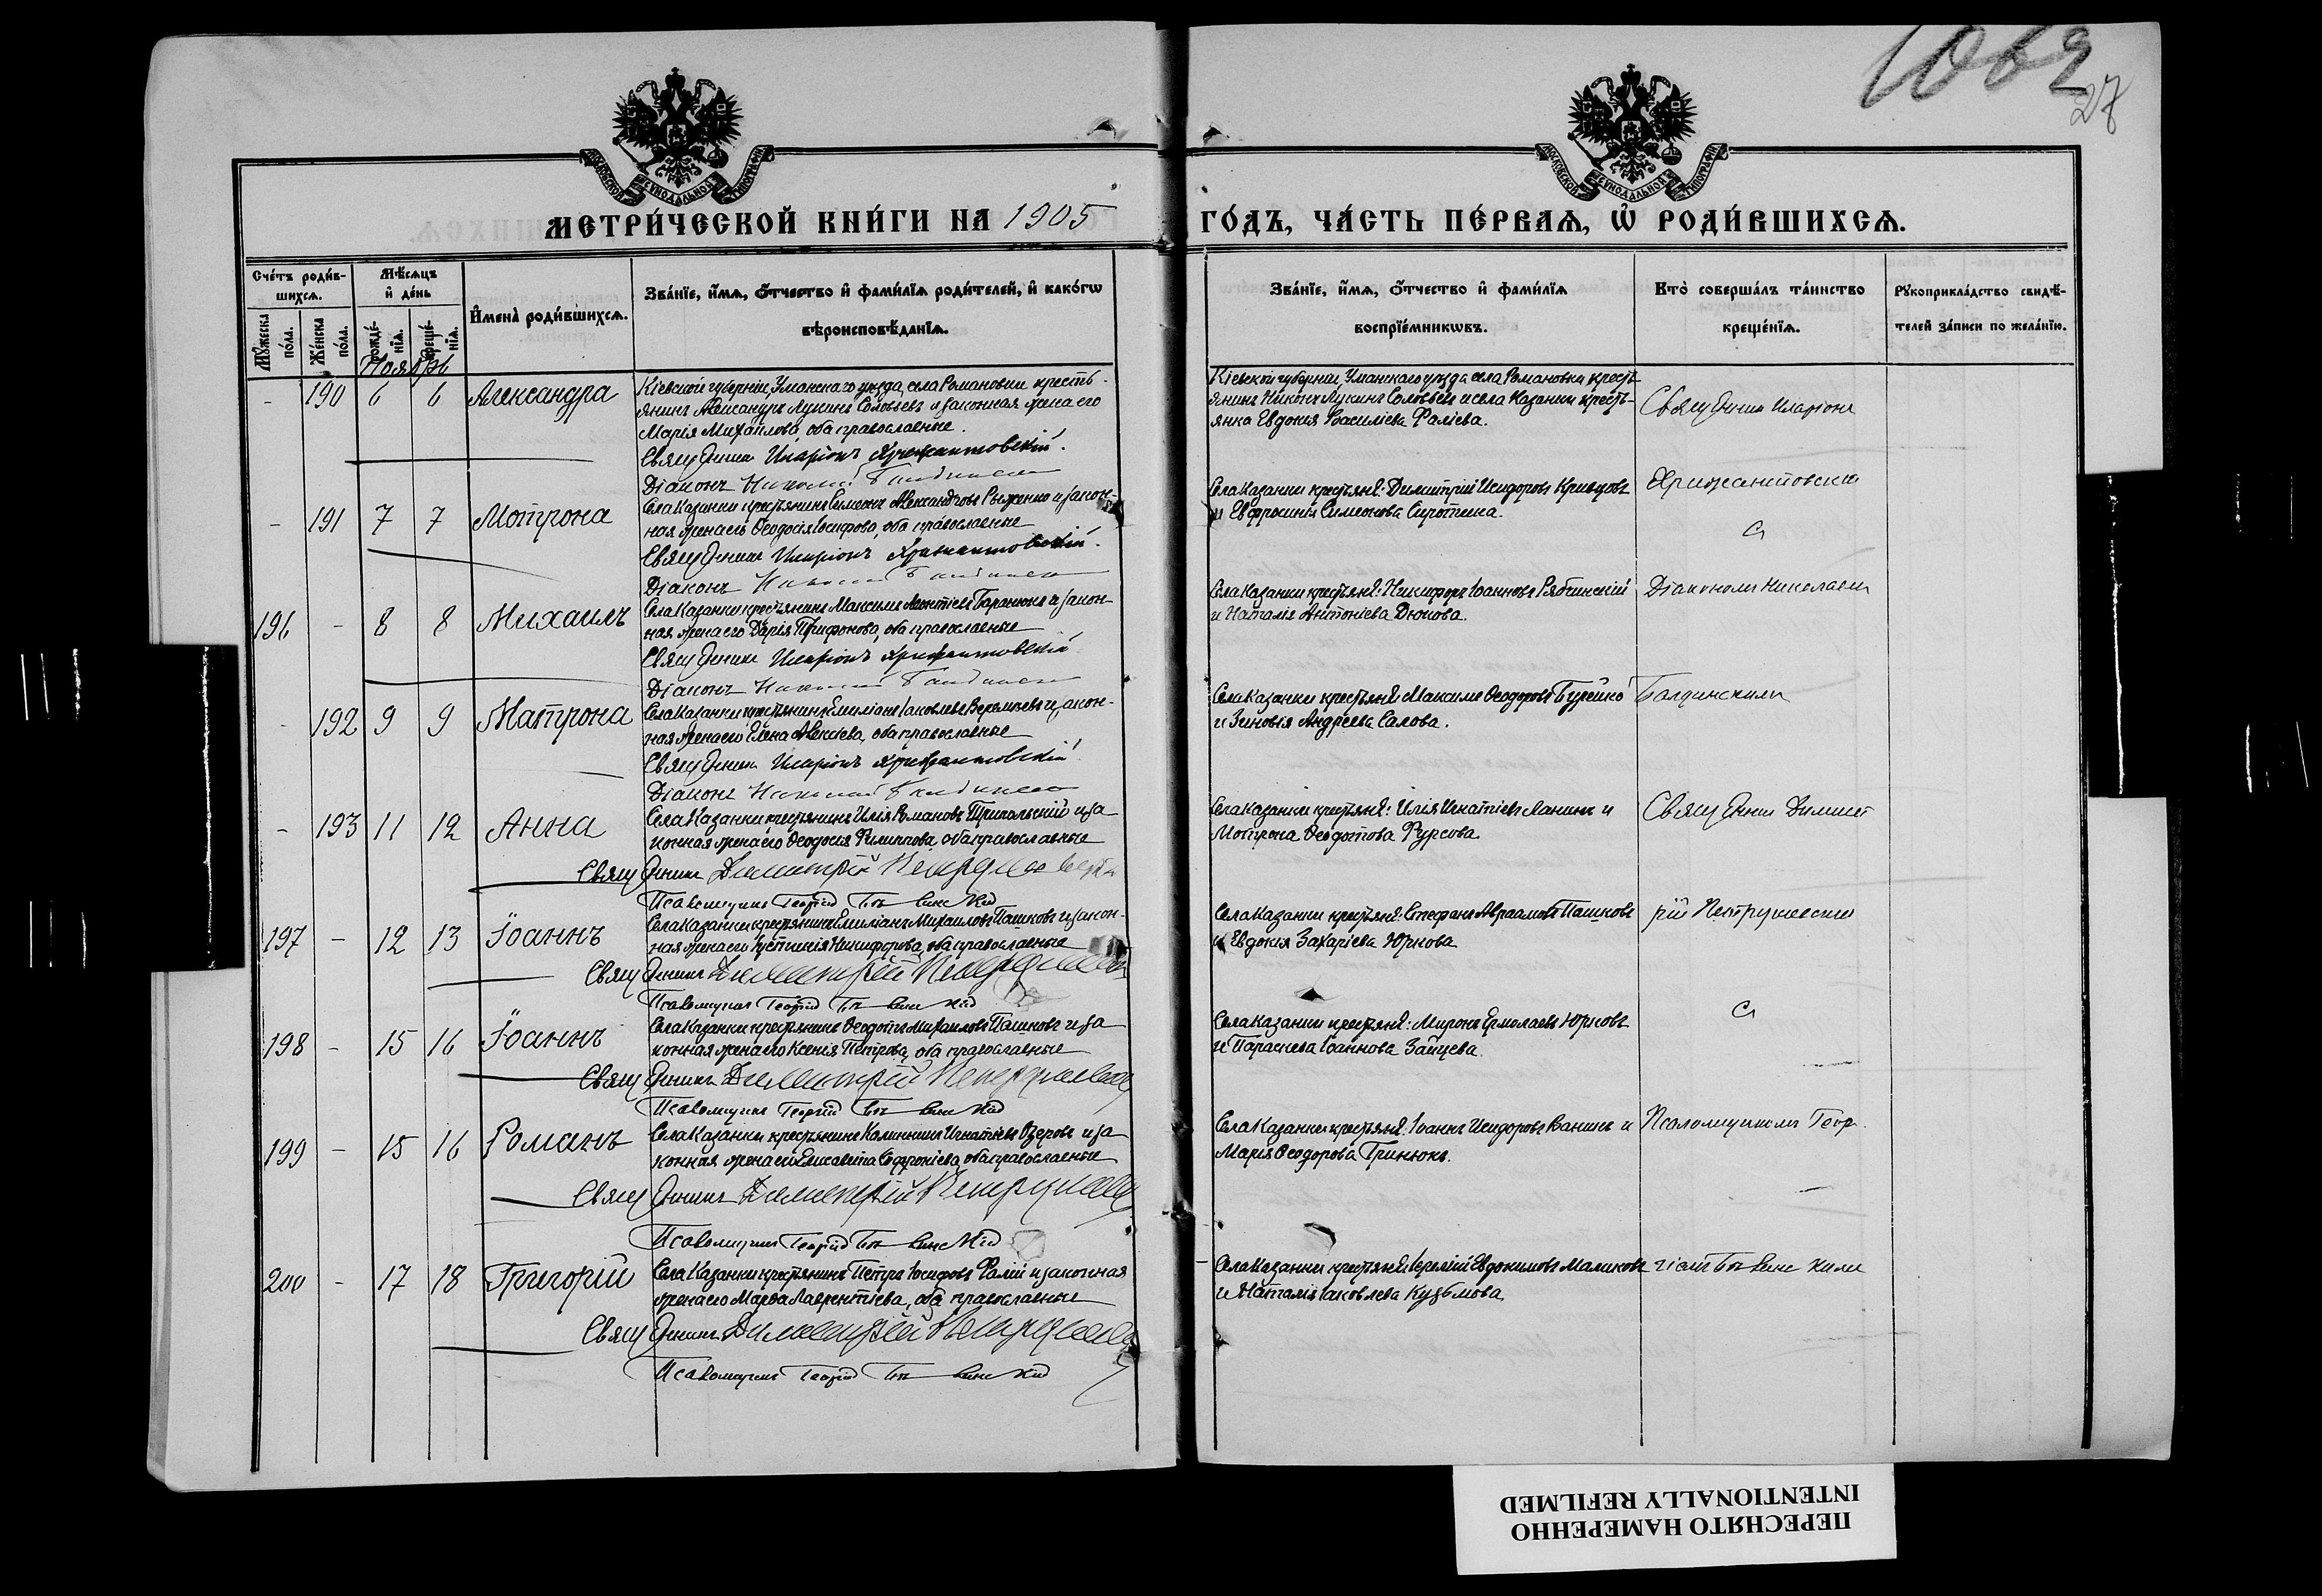 1062
27
МОСКОВСКОЙ СѴНОДАЛЬНОЙ ТИПОГРАФІИ
МОСКОВСКОЙ СѴНОДАЛЬНОЙ ТИПОГРАФІИ
МЕТРИ́ЧЕСКОЙ КНИ́ГИ НА 1905
ГО́ДЪ, ЧА́СТЬ ПЕ́РВАѦ, Ѡ҆ РОДИ́ВШИХСѦ.
Сче́тъ роди́в-
шихсѧ.
Мꙋ́жеска по́ла.
Же́нска по́ла.
Мѣ́сѧцъ
и҆ де́нь
рожде́-
нїѧ.
креще́-
нїѧ.
И҆мена̀ роди́вшихсѧ.
Зва́нїе, и҆́мѧ, ѻ҆́тчество и҆ фами́лїѧ роди́телей, и҆ како́гѡ
вѣроисповѣ́данїѧ.
Зва́нїе, и҆́мѧ, ѻ҆́тчество и҆ фами́лїѧ
воспрїе́мникѡвъ.
Кто̀ соверша́лъ та́инство
креще́нїѧ.
Рꙋкоприкла́дство свидѣ́-
телей за́писи по жела́нїю.
Ноябрь
- 190 6 6 Александра
Кіевской губерніи, Уманскаго уезда, села Романовки кресть-
янинъ Александръ Лукинъ Соловьевъ и законная жена его
Марія Михайлова, оба православные.
Священникъ Иларіонъ Хрисанѳовскій.
Діаконъ Николай
Кіевской губерніи, Уманскаго уезда села Романовки кресть-
янинъ Никонъ Лукинъ Соловьевъ и села Казанки кресть-
янка Евдокія Василіева Фаліева.
Священникъ Иларіонъ
- 191 7 7 Мотрона
Села Казанки крестьянинъ Симеонъ Александровъ и закон-
ная жена его Ѳеодосія Іосифова, оба православные
Священникъ Иларіонъ
Діаконъ Николай
Села Казанки крестьяне: Димитрій Исидоровъ Кривцовъ
и Евфросинія Симеонова Сиротина.
и
196 - 8 8 Михаилъ
Села Казанки крестьянинъ Максимъ Леонтіевъ Баранюкъ и закон-
ная жена его Дарія Трифонова, оба православные
Священникъ Иларіонъ
Діаконъ Николай
Села Казанки крестьяне: Никифоръ Іоанновъ Рябчинскій
и Наталія Антоніева Дюкова.
Діакономъ Николаемъ
- 192 9 9 Матрона
Села Казанки крестьянинъ Емиліанъ Іаковлевъ и закон-
ная жена его Елена Алексіева, оба православные
Священникъ Иларіонъ
Діаконъ Николай
Села Казанки крестьяне: Максимъ Ѳеодоровъ Бурейко
и Зиновія Андреева Салова.
- 193 11 12 Анна
Села Казанки крестьянинъ Илія Романовъ Трипольскій и за
конная жена его Ѳеодосія Филиппова, оба православные
Священникъ Димитрій
Псаломщикъ Георгій
Села Казанки крестьяне: Илія Игнатіевъ Ланинъ и
Мотрона Ѳеодотова Фурсова.
Священникъ Димит
197 - 12 13 Іоаннъ
Села Казанки крестьянинъ Емиліанъ Михаиловъ Пашковъ и закон-
ная жена его Іустинія Никифорова, оба православные
Священникъ Димитрій
Псаломщикъ Георгій
Села Казанки крестьяне: Стефанъ Авраамовъ Пашковъ
и Евдокія Захаріева Юркова.
рій Петрушевскій
198 - 15 16 Іоаннъ
Села Казанки крестьянинъ Ѳеодотъ Михаиловъ Пашковъ и за
конная жена его Ксенія Петрова, оба православные
Священникъ Димитрій
Псаломщикъ Георгій
Села Казанки крестьяне: Миронъ Ермолаевъ Юрковъ
и Параскева Іоаннова Зайцева.
и
199 - 15 16 Романъ
Села Казанки крестьянинъ Калинникъ Игнатіевъ Озеровъ и за
конная жена его Елисавета Софроніева, оба православные
Священникъ Димитрій
Псаломщикъ Георгій
Села Казанки крестьяне: Іоаннъ Исидоровъ Ванинъ и
Марія Ѳеодорова Гринюкъ.
Псаломщикомъ Геор-
200 - 17 18 Григорій
Села Казанки крестьянинъ Петръ Іосифовъ Фалій и законная
жена его Марѳа Лаврентіева, оба православные
Священникъ Димитрій
Псаломщикъ Георгій
Села Казанки крестьяне: Іеремій Евдокимовъ Маликовъ
и Наталія Іаковлева Кузьмова.
гіемъ
ПЕРЕСНЯТО НАМЕРЕННО
INTENTIONALLY REFILMED